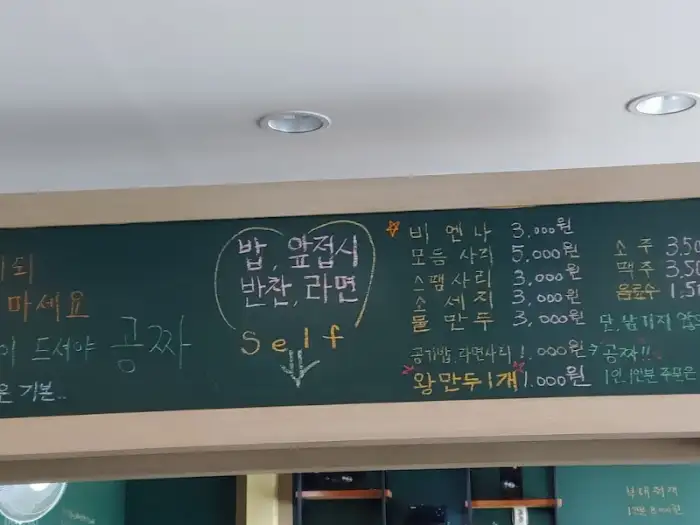 마세요
드셔야 공짜
기본..
밥, 앞접시
반찬, 라면
Self
비엔나 3,000원
모듬사리 5,000원
스팸사리 3,000원
소세지 3,000원
물만두 3,000원
공기밥, 라면사리 1,000원 → 공짜!!
왕만두 1개 1,000원
소주 3.50
맥주 3.50
음료수 1.5
단, 남기지
1인 1인분 주문은